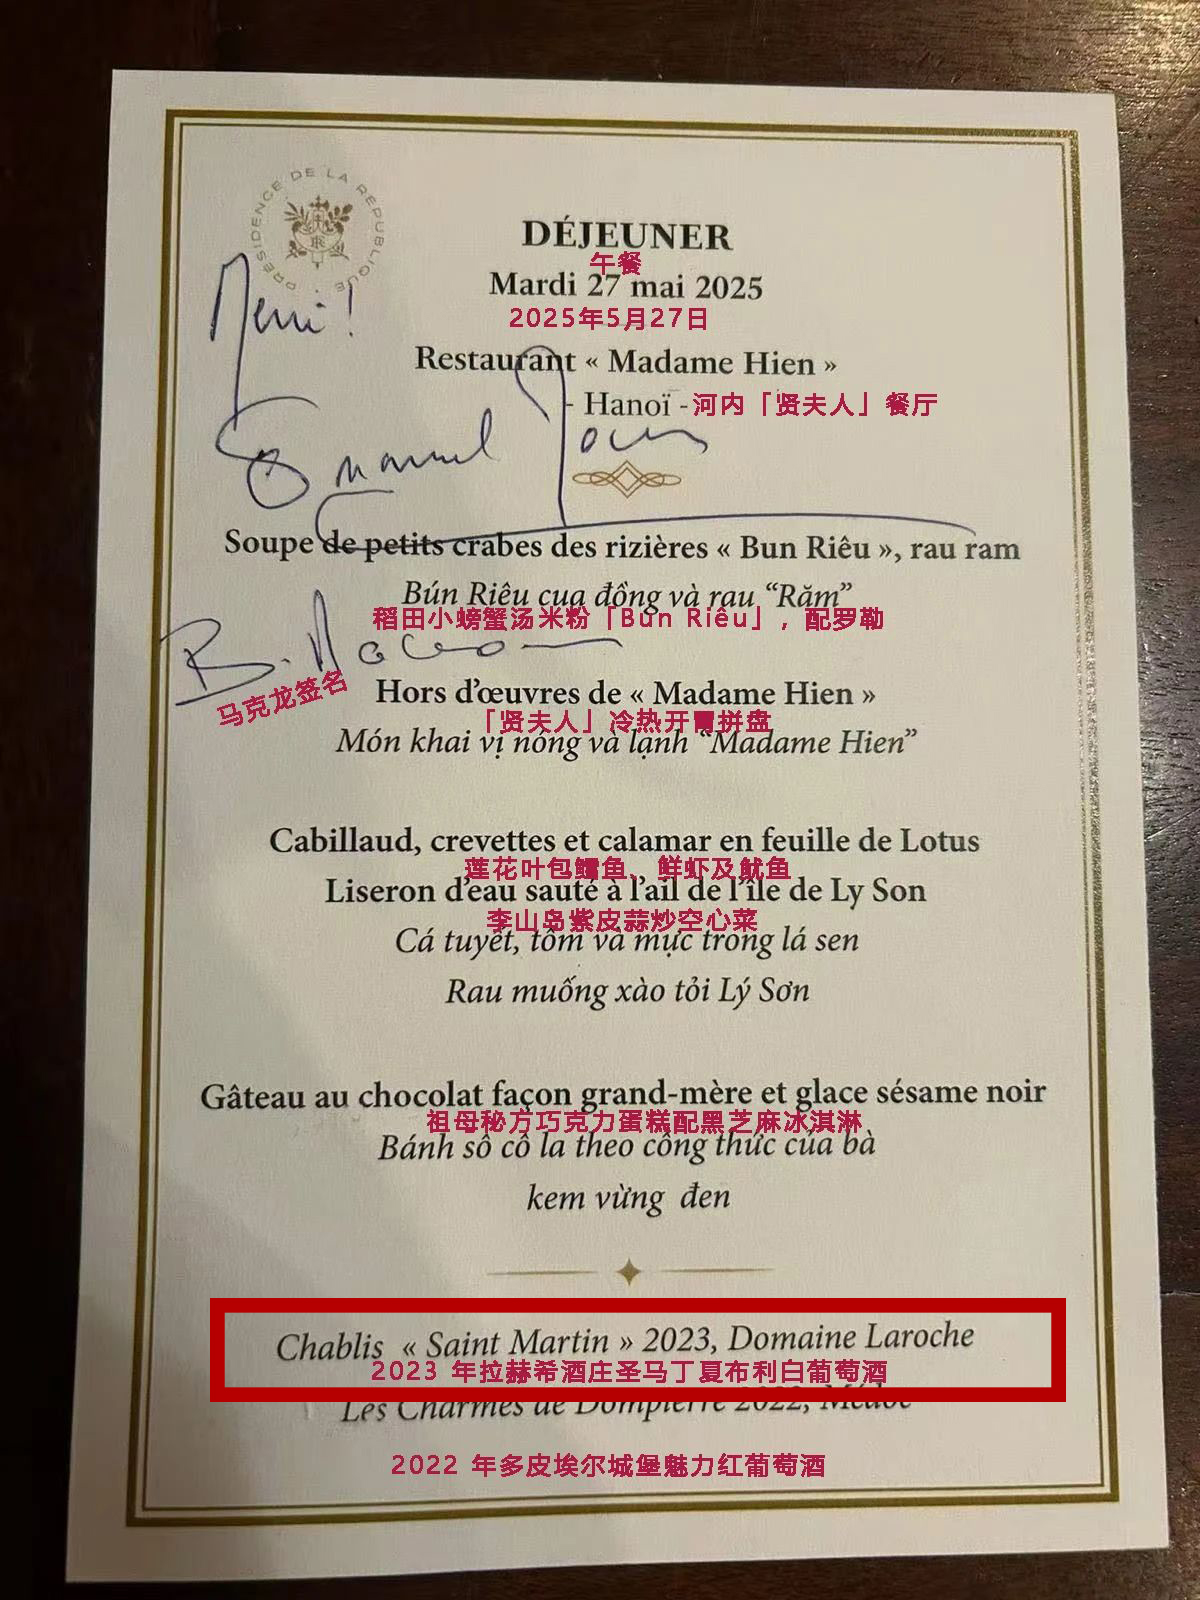 PRÉSIDENCE DE LA RÉPUBLIQUE
DÉJEUNER
午餐
Mardi 27 mai 2025
2025年5月27日
Merci !
Restaurant « Madame Hien »
- Hanoï -
河内「贤夫人」餐厅
Emmanuel
Soupe de petits crabes des rizières « Bun Riêu », rau ram
Bún Riêu cua đồng và rau “Răm”
稻田小螃蟹汤米粉「Bun Riêu」，配罗勒
B. Macron
马克龙签名
Hors d’œuvres de « Madame Hien »
「贤夫人」冷热开胃拼盘
Món khai vị nóng và lạnh “Madame Hien”
Cabillaud, crevettes et calamar en feuille de Lotus
莲花叶包鳕鱼、鲜虾及鱿鱼
Liseron d’eau sauté à l’ail de l’île de Ly Son
李山岛紫皮蒜炒空心菜
Cá tuyết, tôm và mực trong lá sen
Rau muống xào tỏi Lý Sơn
Gâteau au chocolat façon grand-mère et glace sésame noir
祖母秘方巧克力蛋糕配黑芝麻冰淇淋
Bánh sô cô la theo công thức của bà
kem vừng đen
Chablis « Saint Martin » 2023, Domaine Laroche
2023 年拉赫希酒庄圣马丁夏布利白葡萄酒
Les Charmes de Dompierre 2022, Médoc
2022 年多皮埃尔城堡魅力红葡萄酒